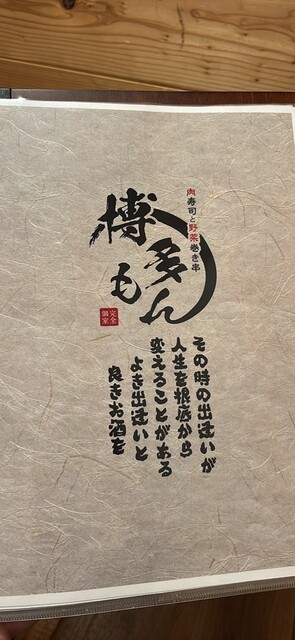 肉寿司と野菜巻き串
博多もん
完全
個室
その時の出逢いが
人生を根底から
変えることがある
よき出逢いと
良きお酒を